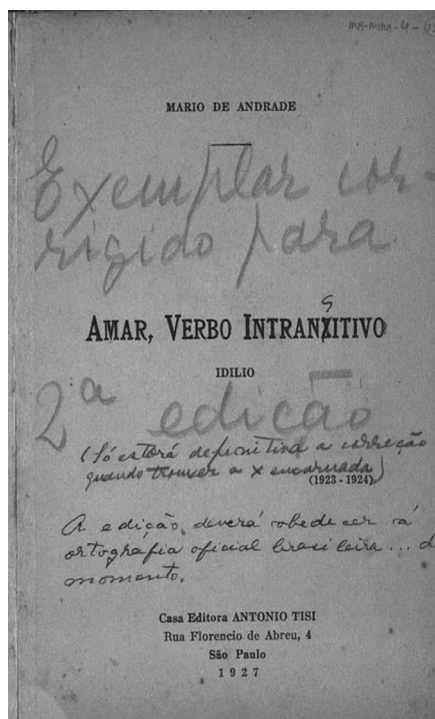 MARIO DE ANDRADE
Exemplar cor-
rigido para
AMAR, VERBO INTRANSITIVO
IDILIO
2ª edição
(Só estará definitiva a correção
quando trouxer a x encarnada)
(1923 - 1924)
A edição deverá obedecer á
ortografia oficial brasileira... d
momento.
Casa Editora ANTONIO TISI
Rua Florencio de Abreu, 4
São Paulo
1927